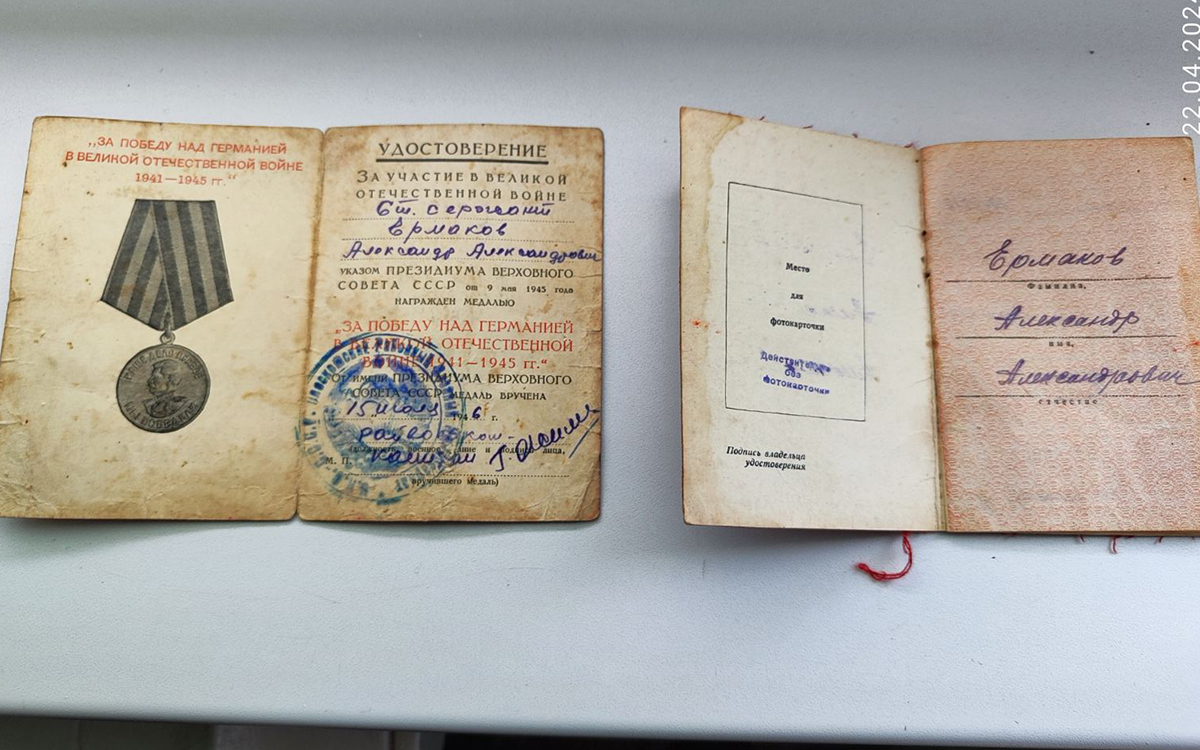 „ЗА ПОБЕДУ НАД ГЕРМАНИЕЙ
В ВЕЛИКОЙ ОТЕЧЕСТВЕННОЙ ВОЙНЕ
1941—1945 гг.“
НАШЕ ДЕЛО ПРАВОЕ
МЫ ПОБЕДИЛИ
УДОСТОВЕРЕНИЕ
ЗА УЧАСТИЕ В ВЕЛИКОЙ
ОТЕЧЕСТВЕННОЙ ВОЙНЕ
Ст. сержант
Ермаков
Александр Александрович
УКАЗОМ ПРЕЗИДИУМА ВЕРХОВНОГО
СОВЕТА СССР от 9 мая 1945 года
НАГРАЖДЕН МЕДАЛЬЮ
„ЗА ПОБЕДУ НАД ГЕРМАНИЕЙ
В ВЕЛИКОЙ ОТЕЧЕСТВЕННОЙ
ВОЙНЕ 1941—1945 гг.“
ОТ ИМЕНИ ПРЕЗИДИУМА ВЕРХОВНОГО
СОВЕТА СССР МЕДАЛЬ ВРУЧЕНА
15 1946 г.
М. П.
вручившего медаль)
Место
для
фотокарточки
Действительно
без
фотокарточки
Подпись владельца
удостоверения
Ермаков
Фамилия,
Александр
имя,
Александрович
отчество
22.04.2024